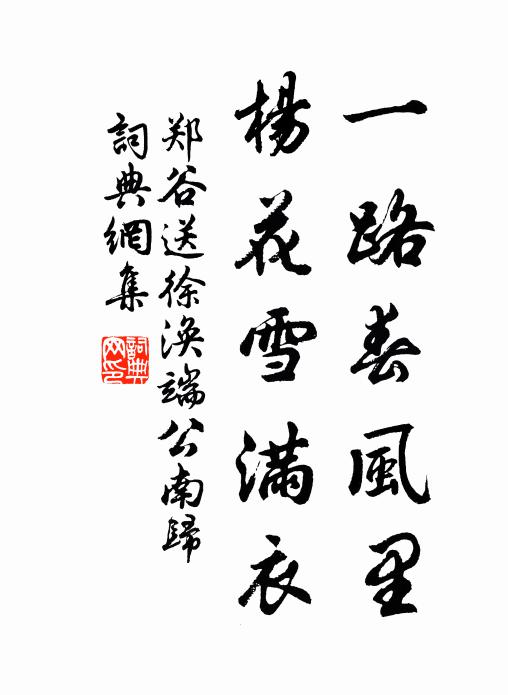 一路春風里
楊花雪满衣
郑谷送徐涣端公南歸
詞典網集
詞典网印